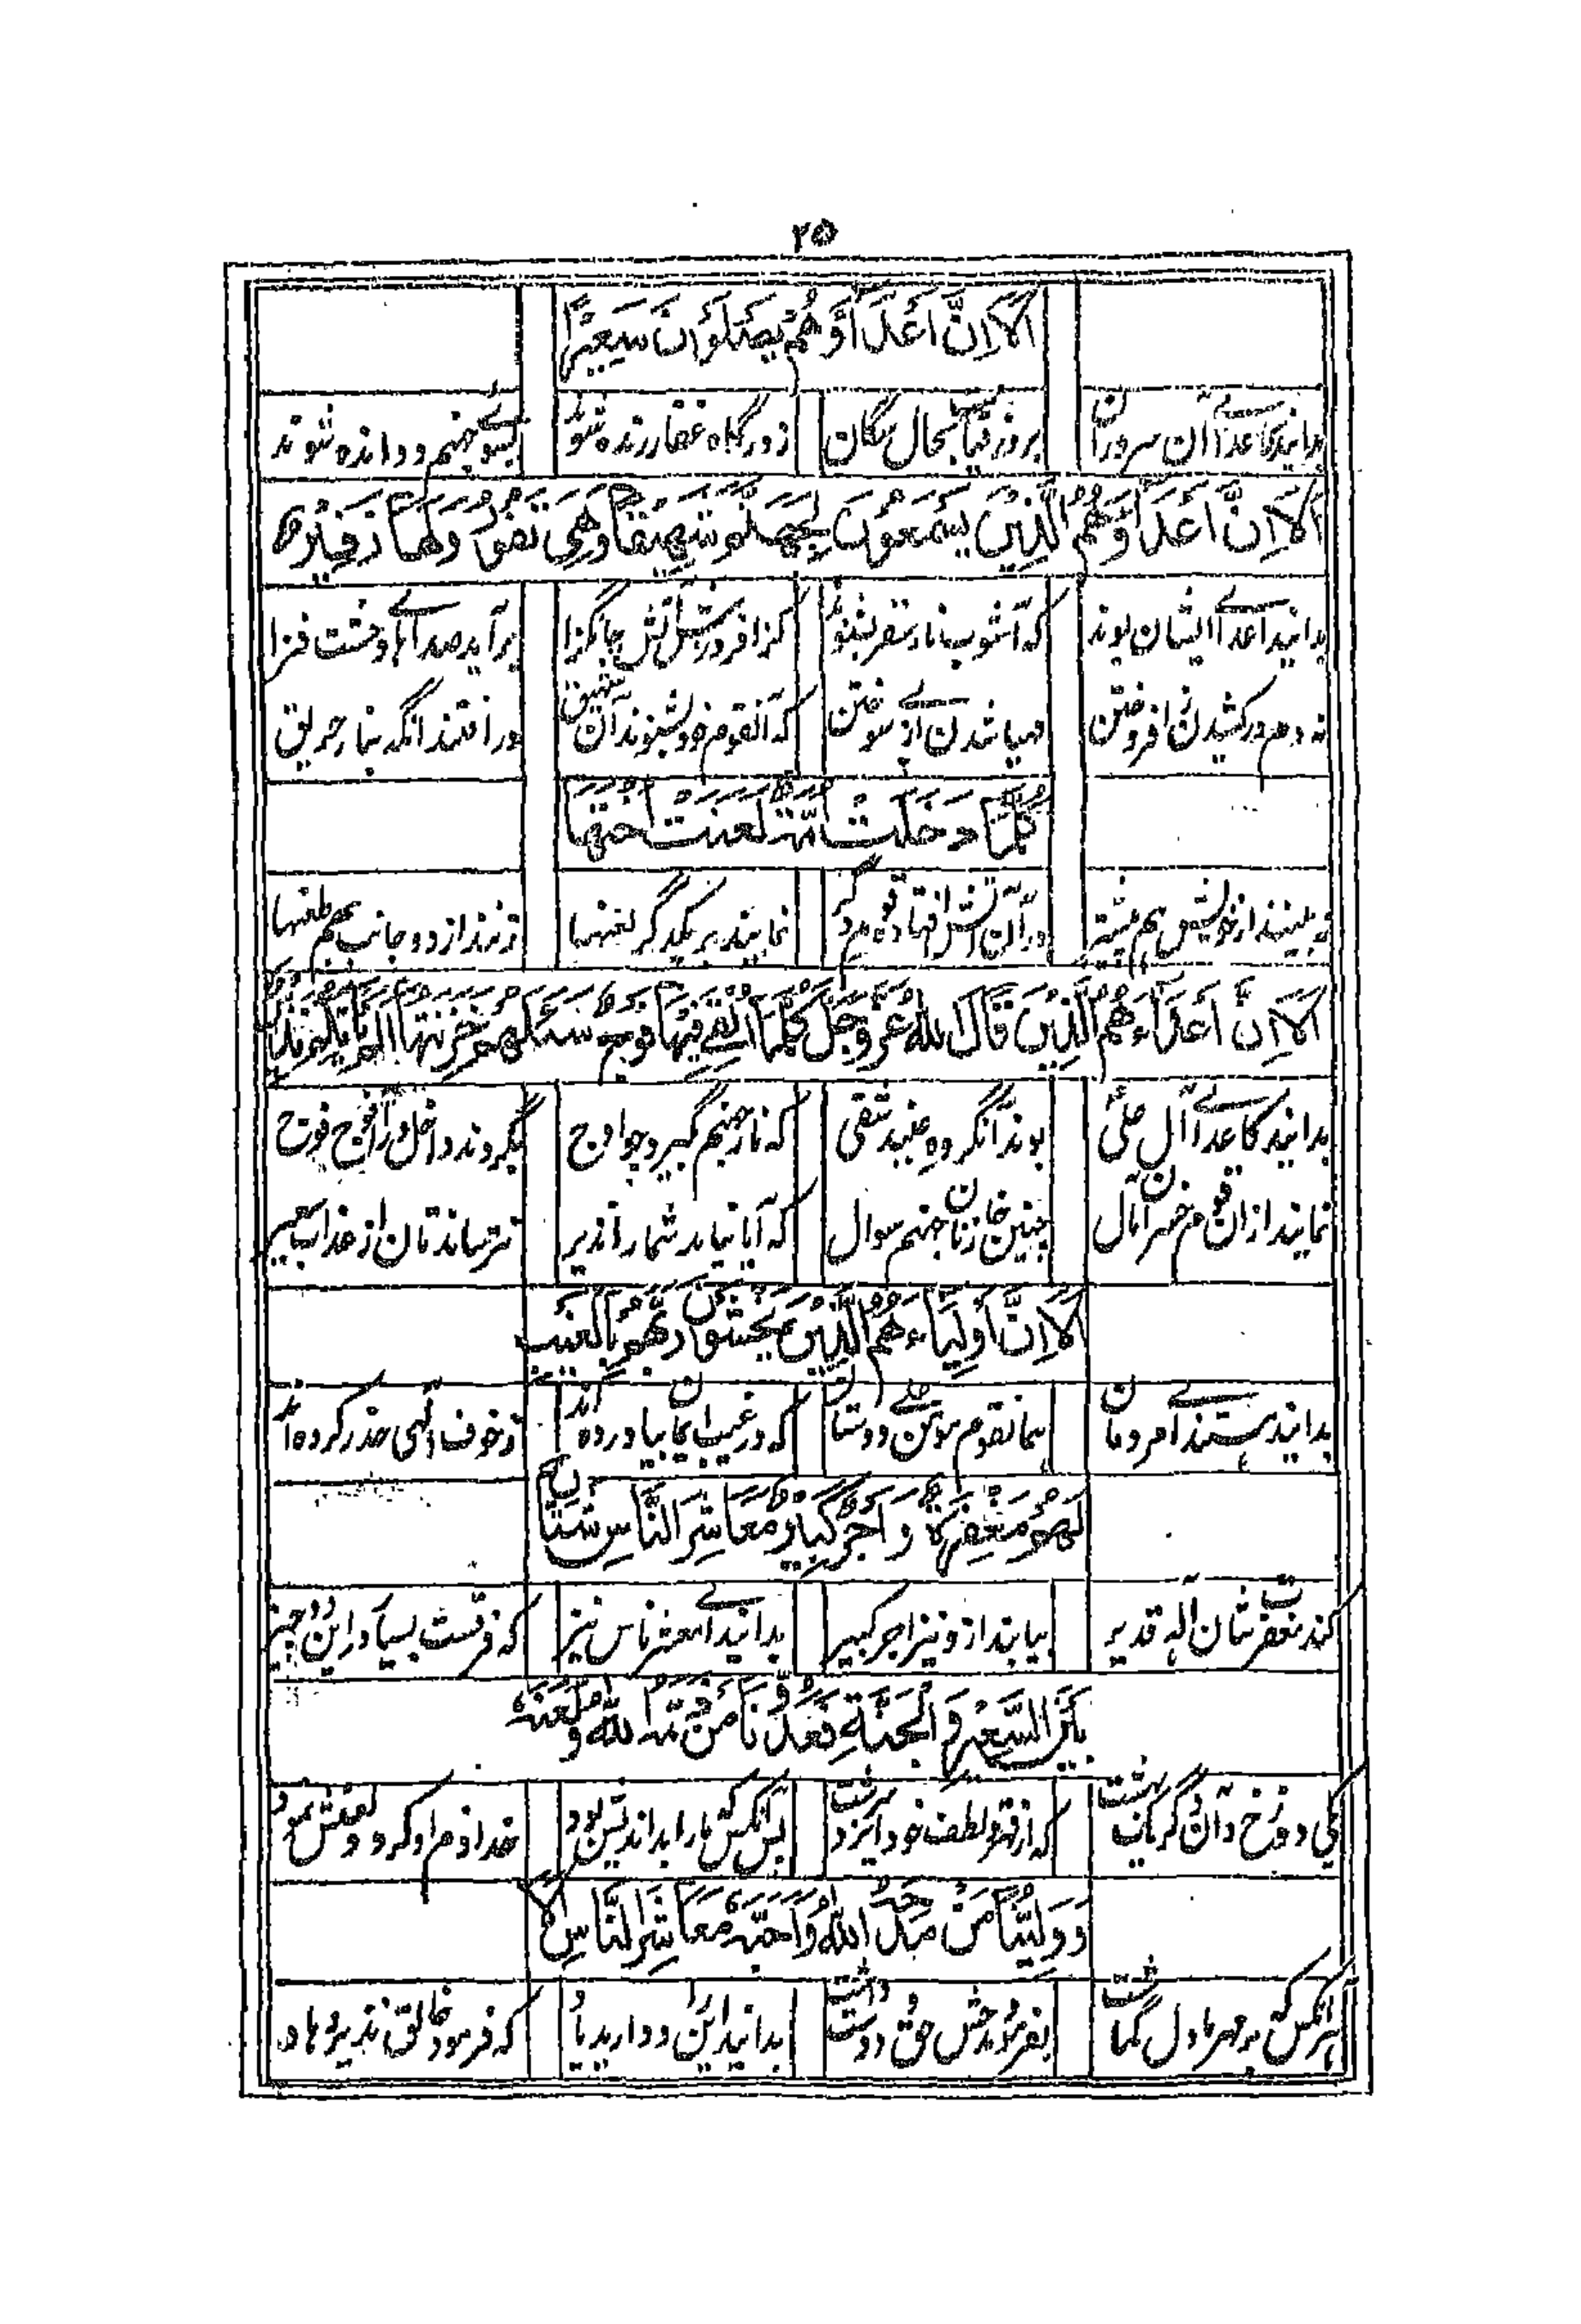 ۲۵
اَلَا اِنَّ اَعْدَآءَهُمْ يَصْلَوْنَ سَعِيْرًا
بدانید کاعدای آن سروران بروز قیامت بحال سگان ز درگاه غفار رنده شوند بسوی جهنم دوانده شوند
اَلَا اِنَّ اَعْدَآءَهُمُ الَّذِيْنَ يَسْمَعُوْنَ لِجَهَنَّمَ شَهِيْقًا وَهِيَ تَفُوْرُ وَلَهَا زَفِيْرٌ
بدانید اعدای ایشان بوند که آشوب نار سقر بشنوند کز افروزش آتش جانگزا برآید صداهای وحشت فزا
نه دم درکشیدن از افروختن نه سوختن که آنقوم خود بشنوند آن شهیق در افتند انگه بنار حریق
كُلَّمَا دَخَلَتْ اُمَّةٌ لَعَنَتْ اُخْتَهَا
به بینند از خویش هم پیشتر در آن آتش افتاده قوم دگر نمایند بر یکدگر لعنها زنند از دو جانب بهم طعنها
اَلَا اِنَّ اَعْدَآءَهُمُ الَّذِيْنَ قَالَ اللهُ عَزَّ وَجَلَّ كُلَّمَا اُلْقِيَ فِيْهَا فَوْجٌ سَئَلَهُمْ خَزَنَتُهَا اَلَمْ يَاْتِكُمْ نَذِيْرٌ
بدانید کاعدای آل علی بوند آنگروه شقی که نار جهنم گیرد چو اوج بگردند داخل در آن فوج فوج
نمایند از ان قوم خسران مآل چنین خازنان جهنم سوال که آیا نیامد شما را نذیر نترساندتان از عذاب سعیر
اَلَا اِنَّ اَوْلِيَآءَهُمُ الَّذِيْنَ يَخْشَوْنَ رَبَّهُمْ بِالْغَيْبِ
بدانید هستند همانقوم مومن دوستان که در غیب ایمان بیاورده اند ز خوف الهی حذر کرده اند
لَهُمْ مَغْفِرَةٌ وَاَجْرٌ كَبِيْرٌ مَعَاشِرَ النَّاسِ شَتَّانَ مَا
کند مغفرتشان اله قدیر بیابند ازو نیز اجر کبیر بدانید ای معشر ناس نیز که فرقست بسیار در این دو چیز
بَيْنَ السَّعِيْرِ وَالْجَنَّةِ فَعَدُوُّنَا مَنْ ذَمَّهُ اللهُ وَلَعَنَهُ
یکی دوزخ و آن دگر بهشت که از قهر و لطف خود ایزد سرشت پس آنکس که ما را بداندیش بود خدا ذم او کرد و لعنش نمود
وَوَلِيُّنَا مَنْ مَدَحَهُ اللهُ وَاَحَبَّهُ مَعَاشِرَ النَّاسِ اَلَا
هر آنکس که مهر ما دل گماشت بفرمود مدحش حق و دوست داشت بدانید این را و دارید یاد که فرمود خالق نذیر و هاد